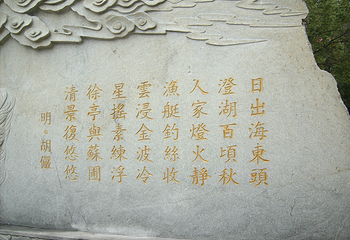 日出海東頭
澄湖百頃秋
人家燈火靜
漁艇釣絲收
雲浸金波冷
星搖素練浮
徐亭與蘇圃
清景復悠悠
明·胡儼